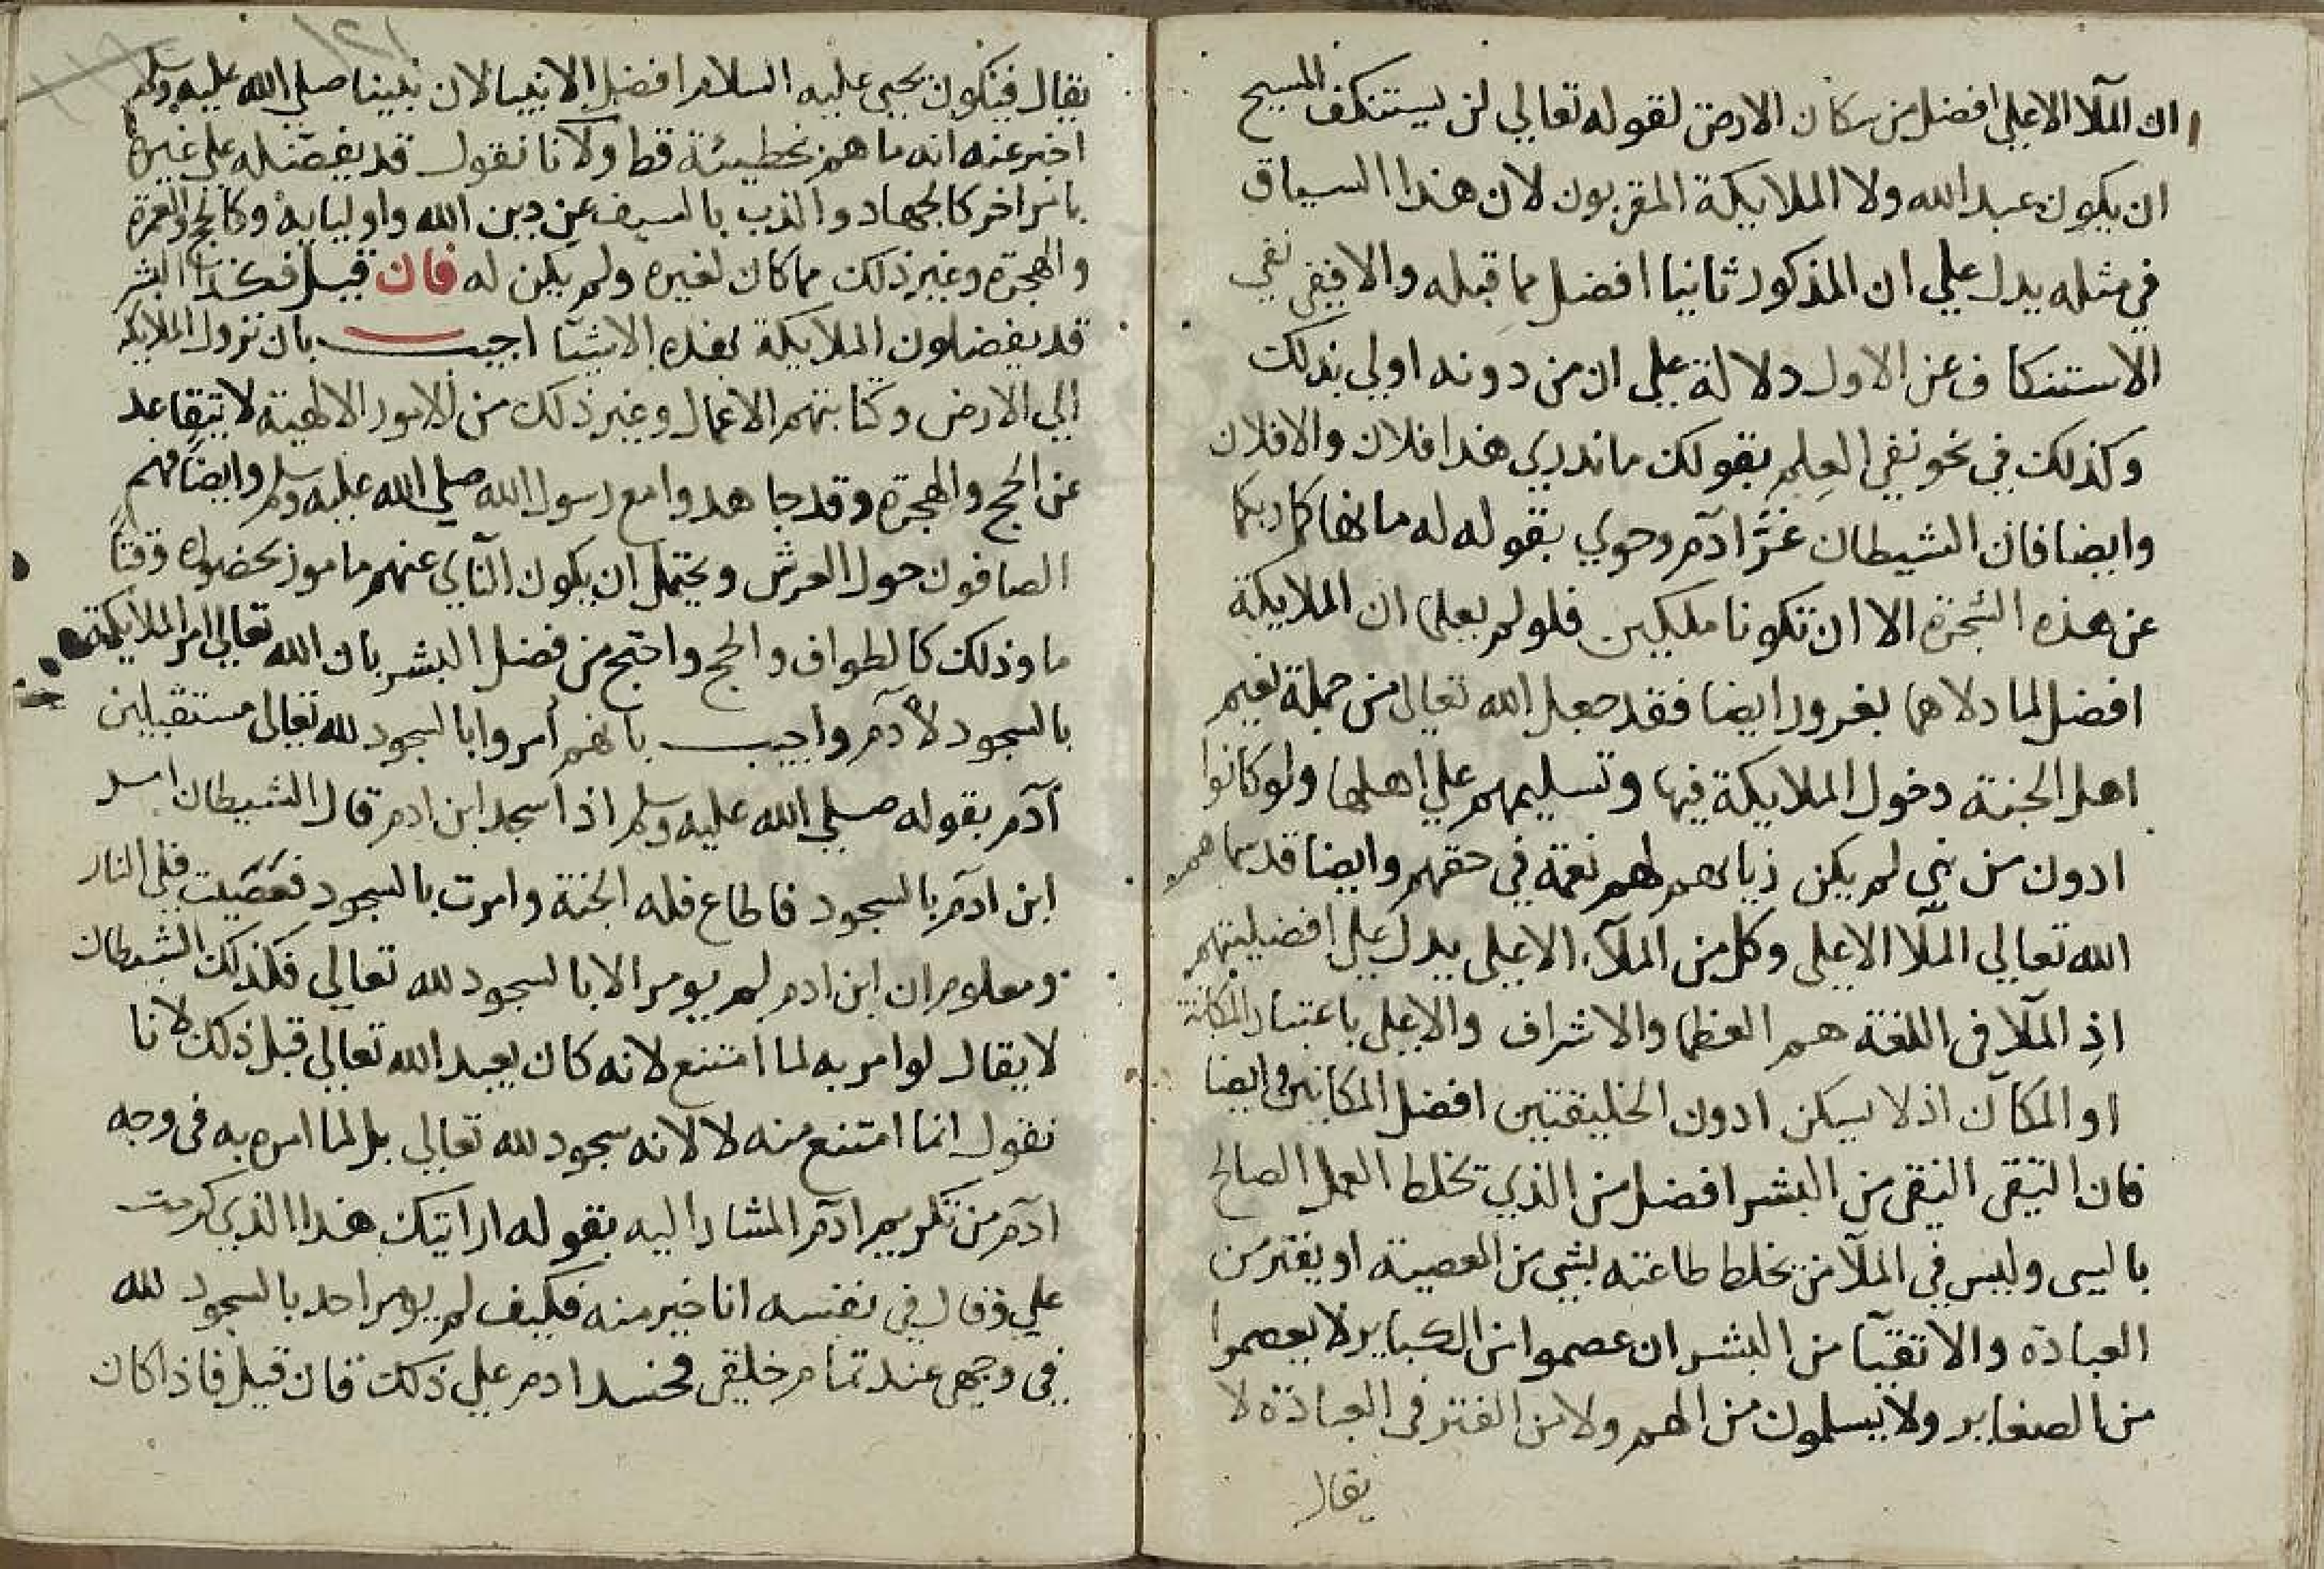 ان الملآ الاعلي افضل من سكان الارض لقوله تعالي لن يستنكف المسيح
ان يكون عبد الله ولا الملايكة المقربون لان هذا السياق
في مثله يدل علي ان المذكور ثانيا افضل مما قبله والا فيقي نفي
الاستنكاف عن الاول دلالة علي ان من دونه اولي بذلك
وكذلك في نحو نفي العلم بقولك ماندري هذا فلان والافلان
وايضا فان الشيطان غرّ ادٓم وحوي بقوله له مانهاكما ربكما
عن هذه الشجرة الا ان تكونا ملكين فلو لم يعلما ان الملايكة
افضل لما دلاهما بغرور ايضا فقد جعل الله تعالي من جملة نعيم
اهل الجنة دخول الملايكة فيها وتسليمهم علي اهلها ولو كانوا
ادون من بني لم يكن زيائهم لهم نعمة في حقهم وايضا قد سماهم
الله تعالي الملآ الاعلي وكل من الملآ، الاعلي يدل علي افضليتهم
اذِ الملآ في اللغة هم العظما والاشراف والاعلي باعتبار المكانة
او المكان اذ لا يسكن ادون الخليقتين افضل المكانين وايضا
فان التقي النقي من البشر افضل من الذي تخلط العمل الصالح
باليسي وليس في الملآ من يخلط طاعته بشي من المعصية او يفتر من
العبادة والاتقيآ من البشر ان عصموا من الكباير لا يعصموا
من الصغاير ولا يسلمون من الهم ولا من الفتر في العبادة لا
يقال
يقال فيكون يحيي عليه السلام افضل الانبيا لان نبينا صلي الله عليه وسلم
اخبر عنه انه ما هم بخطيئة قط ولانا نقول قد يفضله علي غيره
بامر اخر كالجهاد والذب بالسيف عن دين الله واوليايه وكالحج والعمرة
والهجرة وغير ذلك مما كان لغيره ولم يكن له فان قيل فكذا البشر
قد يفضلون الملايكة بهذه الاشيآ اجيب بان نزول الملايكة
الي الارض وكتابتهم الاعمال وغير ذلك من الامور الالهية لا يتقاعد
عن الحج والهجرة وقد جاهدوا مع رسول الله صلي الله عليه وسلم وايضا فهم
الصافون حول العرش ويحتمل ان يكون النآي عنهم مامور بحضوره وقتا
ما وذلك كالطواف والحج واحتج من فضل البشر بان الله تعالي امر الملايكة
بالسجود لآدم واجيب بانهم اُمروا بالسجود لله تعالي مستقبلين
آدم بقوله صلي الله عليه وسلم اذا سجد ابن ادم قال الشيطان امر
ابن ادم بالسجود فاطاع فله الجنة وامرت بالسجود فعَصَيت فلي النار
ومعلوم ان ابن ادم لم يومر الا بالسجود لله تعالي فكذلك الشيطان
لا يقال لو امر به لما امتنع لانه كان يعبد الله تعالي قبل ذلك لانا
نقول انما امتنع منه لا لانه سجود لله تعالي بل لما امره به في وجه
ادم من تكريم ادم المشار اليه بقوله ارايتك هذا الذي كرمت
علي وقال في نفسه انا خير منه فكيف لم يومر احد بالسجود لله
في وجهي عند تمام خلقي فحسد ادم علي ذلك فان قيل فاذا كان